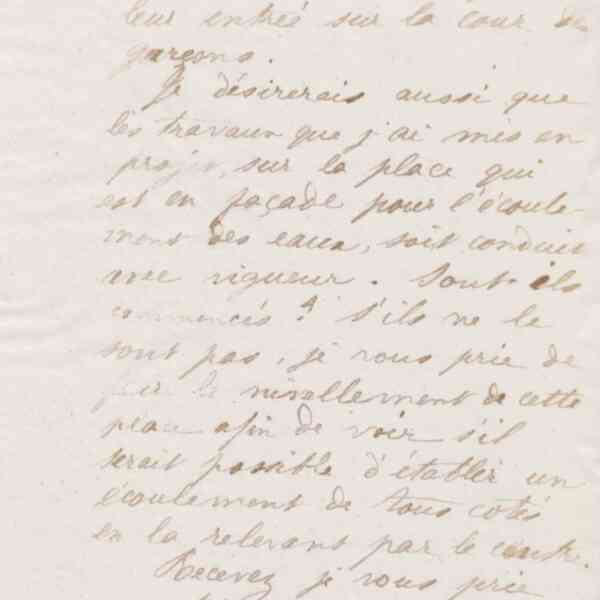 leur entrée sur la cour des
garçons.
Je désirerais aussi que
les travaux que j'ai mis en
projet, sur la place qui
est en façade pour l'écoule-
ment des eaux, soit conduit
avec rigueur. Sont-ils
commencés ? S'ils ne le
sont pas, je vous prie de
faire le nivellement de cette
place afin de voir s'il
serait possible d'établir un
écoulement de tous cotés
en la relevant par le centre.
Recevez je vous prie